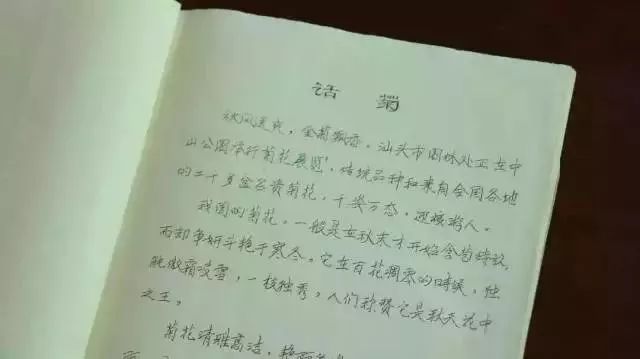 话 菊
秋风送爽，金菊飘香，汕头市园林处正在中
山公园举行菊花展览，传统品种和来自全国各地
的二千多盆名贵菊花，千姿万态，迎接游人。
我国的菊花，一般是在秋末才开始含苞待放，
而却争妍斗艳于寒冬。它在百花凋零的时候，独
能傲霜凌雪，一枝独秀，人们称赞它是秋天花中
之王。
菊花清雅高洁，艳丽